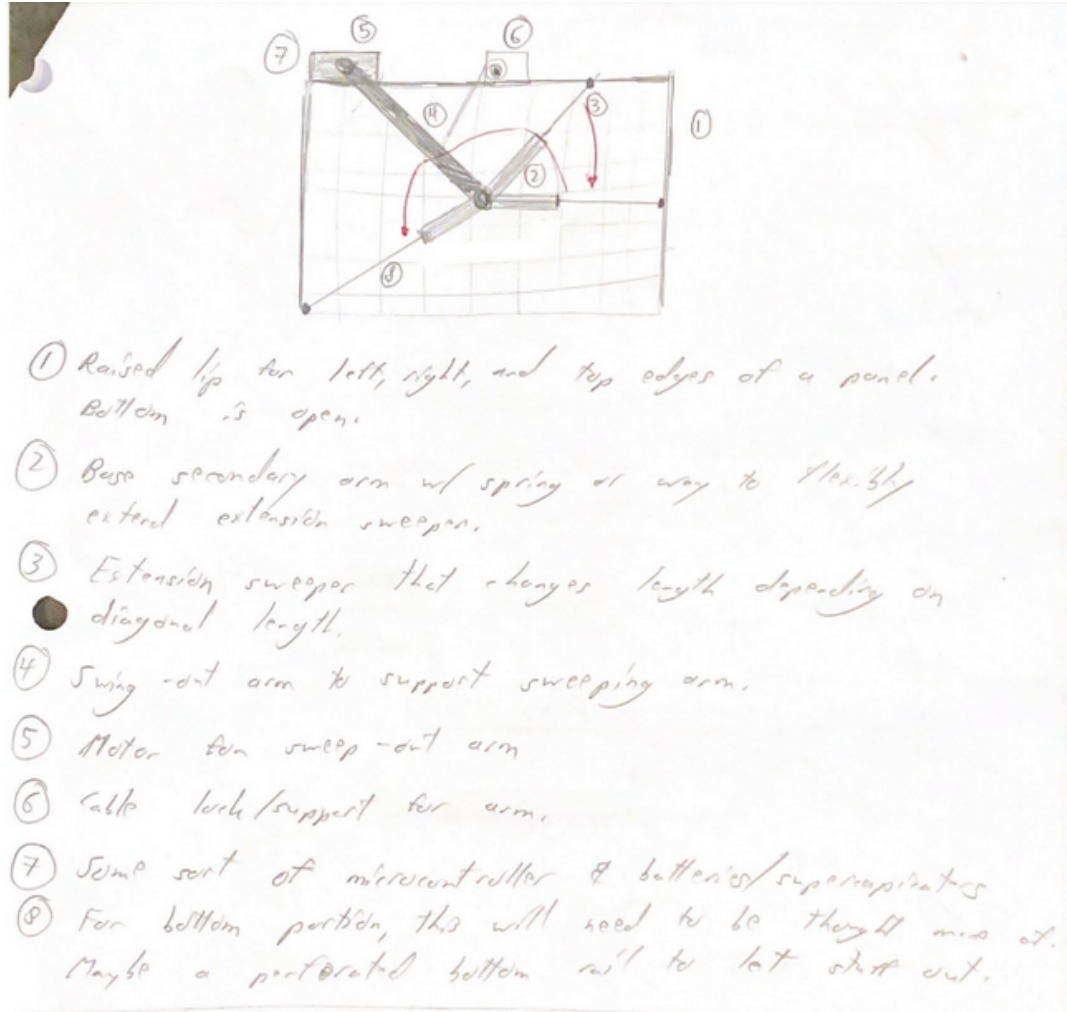 ⑤
⑥
⑦
④
③
①
②
⑧
① Raised lip for left, right, and top edges of a panel.
Bottom is open.
② Base secondary arm w/ spring or way to flexibly
extend extension sweeper.
③ Extension sweeper that changes length depending on
diagonal length.
④ Swing-out arm to support sweeping arm.
⑤ Motor for sweep-out arm
⑥ Cable lock/support for arm.
⑦ Some sort of microcontroller & batteries/supercapicators
⑧ For bottom portion, this will need to be thought more of.
Maybe a perforated bottom rail to let stuff out.